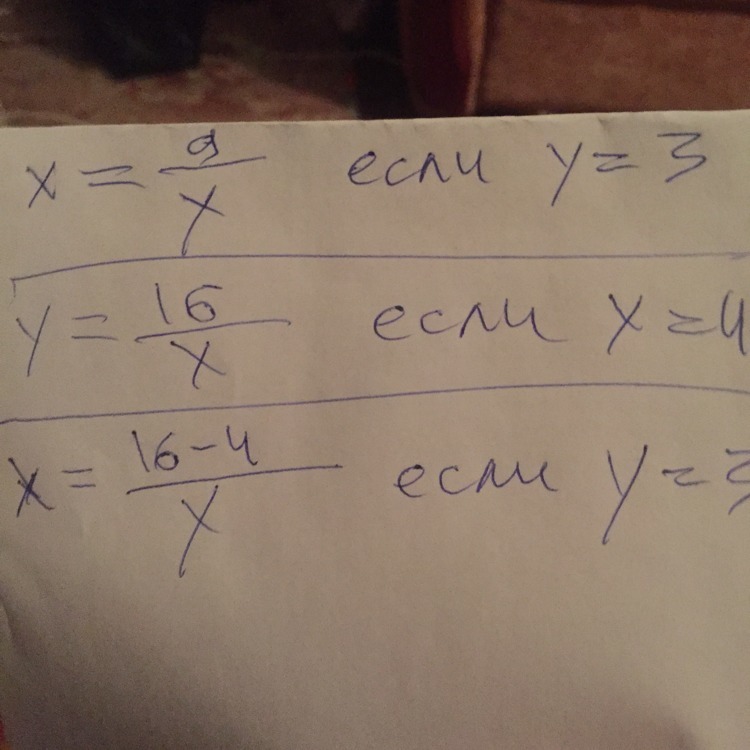 x = 9/y если y = 3
y = 16/x если x = 4
x = 16-4/y если y = 3